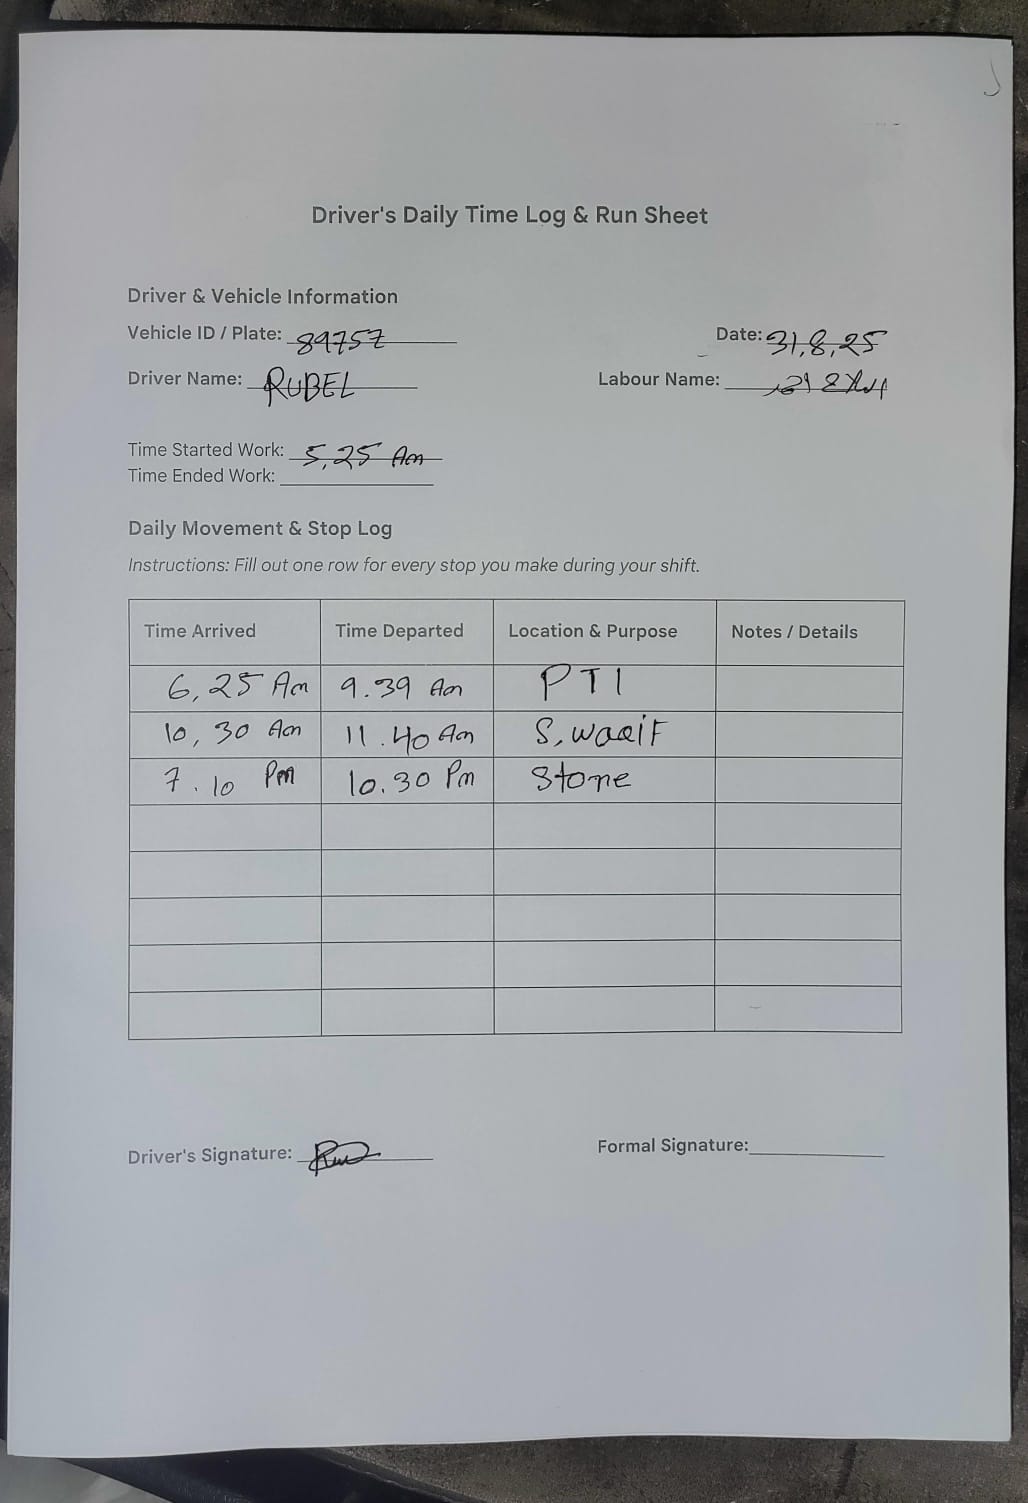 Driver's Daily Time Log & Run Sheet
Driver & Vehicle Information
Vehicle ID / Plate: 89757 Date: 31,8,25
Driver Name: RUBEL Labour Name:
Time Started Work: 5,25 Am
Time Ended Work:
Daily Movement & Stop Log
Instructions: Fill out one row for every stop you make during your shift.
Time Arrived Time Departed Location & Purpose Notes / Details
6,25 Am 9.39 Am PTI
10,30 Am 11.40 Am S,waqif
7.10 Pm 10.30 Pm Store
Driver's Signature: Formal Signature: